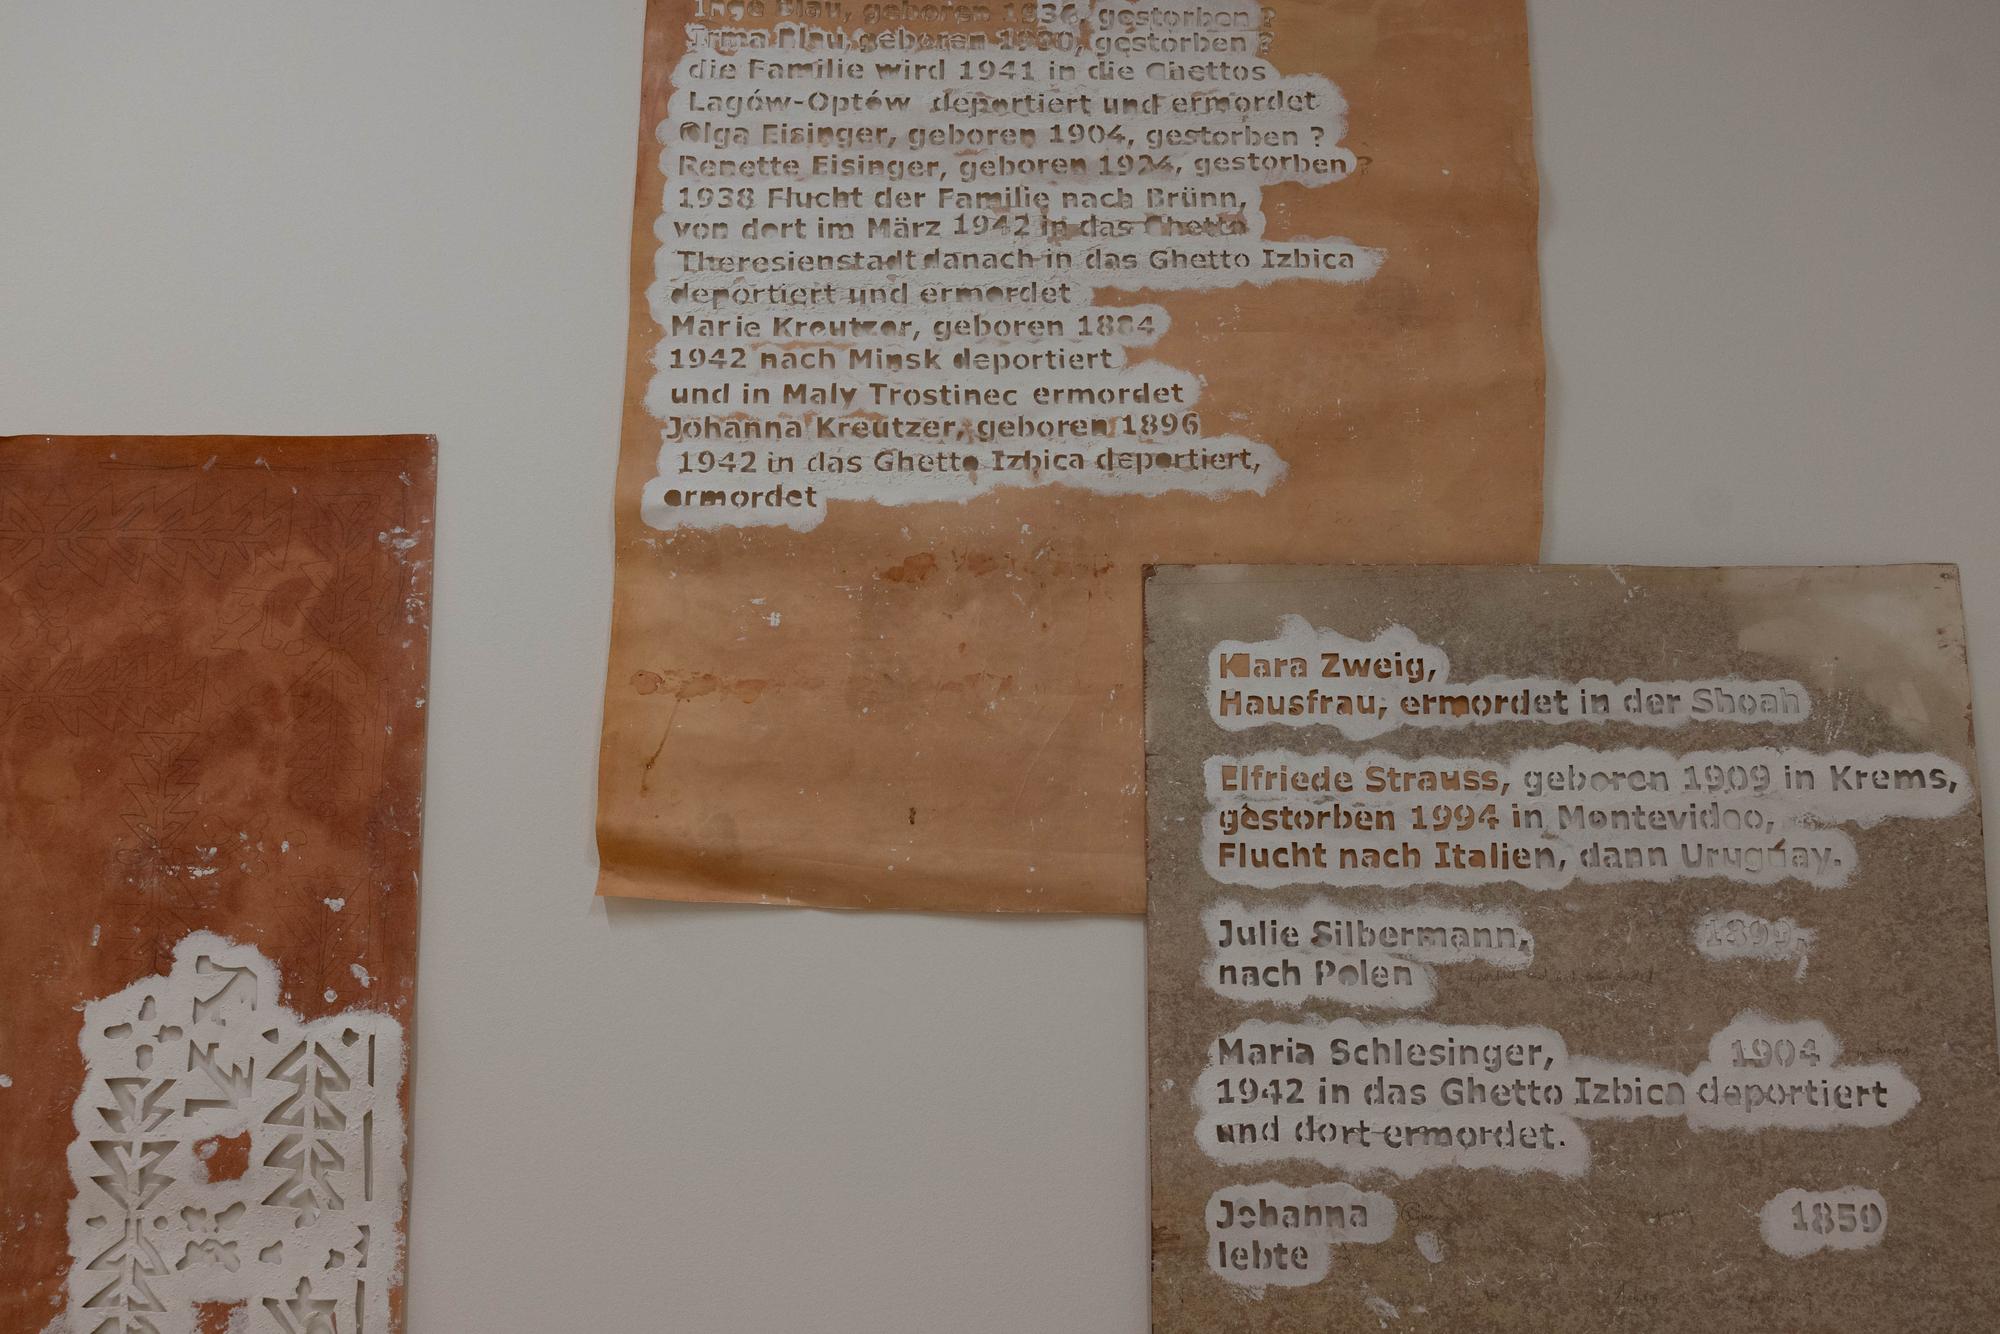 Inge Blau, geboren 1936, gestorben ?
Irma Blau, geboren 1930, gestorben ?
die Familie wird 1941 in die Ghettos
Lagów-Optów deportiert und ermordet
Olga Eisinger, geboren 1904, gestorben ?
Renette Eisinger, geboren 1924, gestorben ?
1938 Flucht der Familie nach Brünn,
von dort im März 1942 in das Ghetto
Theresienstadt danach in das Ghetto Izbica
deportiert und ermordet
Marie Kreutzer, geboren 1884
1942 nach Minsk deportiert
und in Maly Trostinec ermordet
Johanna Kreutzer, geboren 1896
1942 in das Ghetto Izbica deportiert,
ermordet
Klara Zweig,
Hausfrau, ermordet in der Shoah
Elfriede Strauss, geboren 1909 in Krems,
gestorben 1994 in Montevideo,
Flucht nach Italien, dann Uruguay.
Julie Silbermann, 1899,
nach Polen
Maria Schlesinger, 1904
1942 in das Ghetto Izbica deportiert
und dort ermordet.
Johanna 1859
lebte